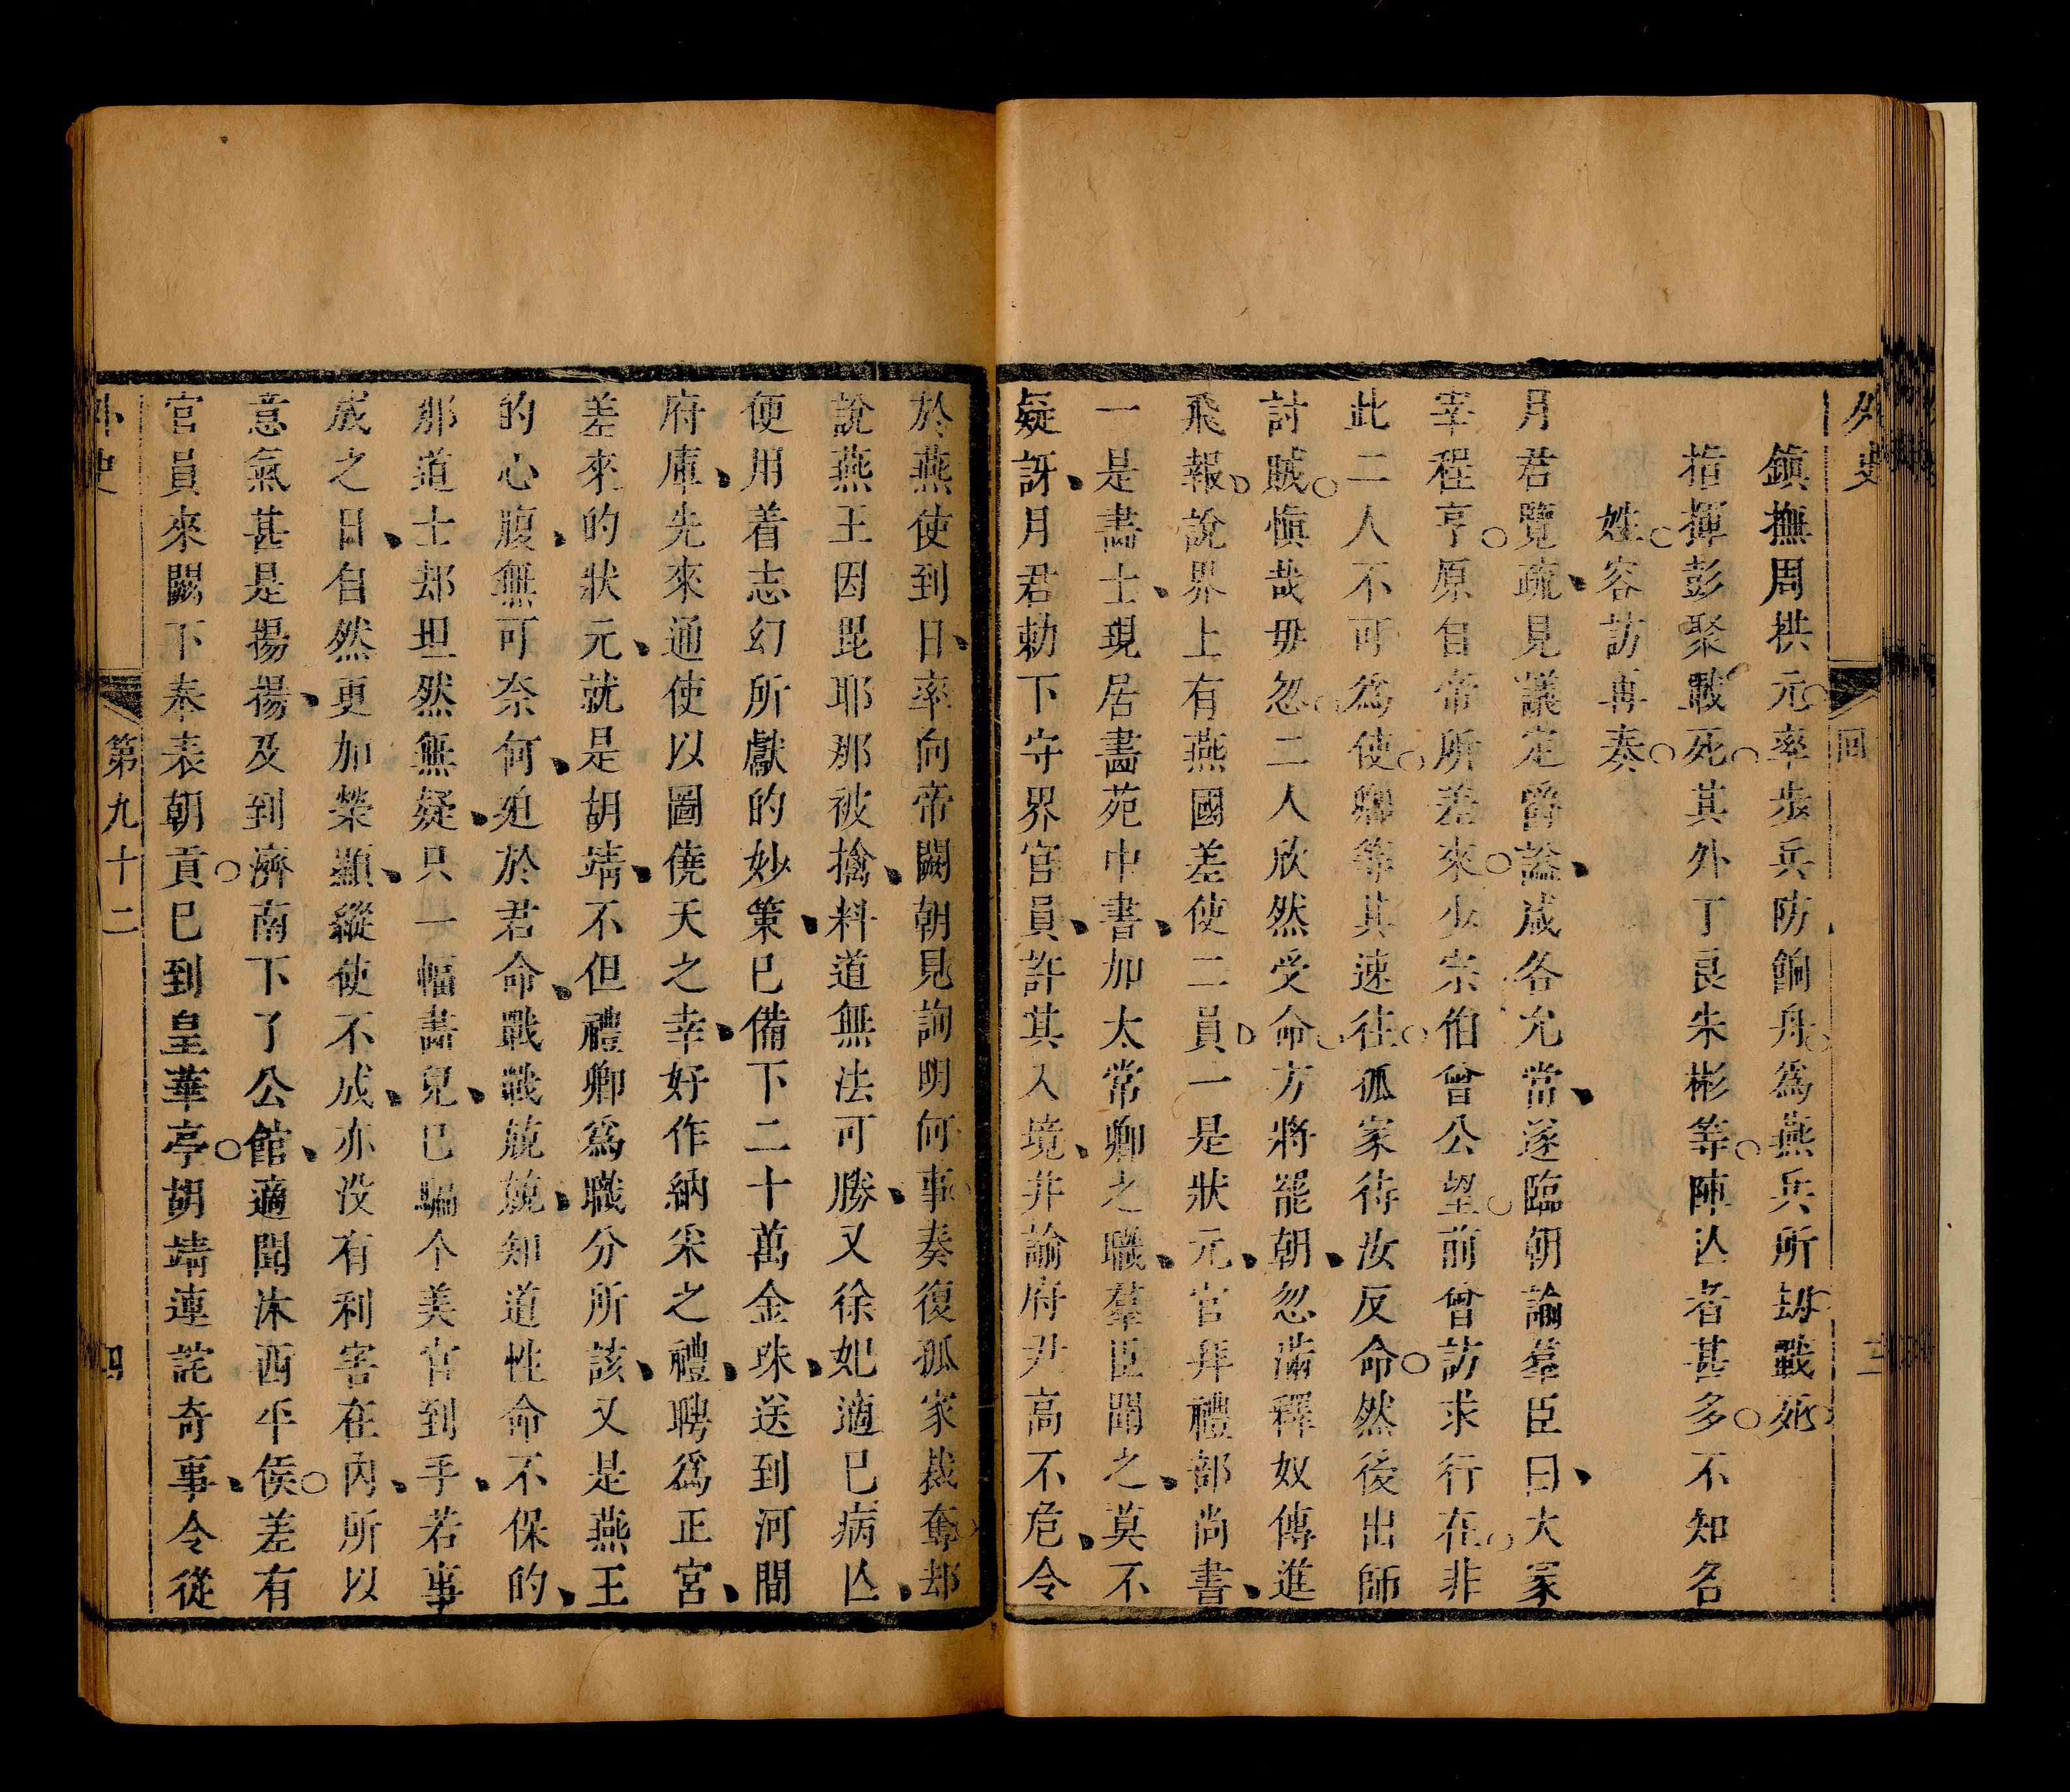 外史
回
三
鎮撫周拱元率步兵防餉舟為燕兵所刼戰死
指揮彭聚戰死其外丁良朱彬等陣亾者甚多不知名
姓容訪再奏
月君覽疏見議定爵謚咸各允當遂臨朝諭羣臣曰大冢
宰程亨原自帝所差來少宗伯曾公望前曾訪求行在非
此二人不可為使卿等其速往孤家待汝反命然後出師
討賊愼哉毋忽二人欣然受命方將罷朝忽滿釋奴傳進
飛報說界上有燕國差使二員一是狀元官拜禮部尚書
一是畵士現居畵苑中書加太常卿之職羣臣聞之莫不
疑訝月君勅下守界官員許其入境并諭府尹高不危令
於燕使到日率向帝闕朝見詢明何事奏復孤家裁奪却
說燕王因毘耶那被擒料道無法可勝又徐妃適已病亾
便用着志幻所獻的妙策已備下二十萬金珠送到河間
府庫先來通使以圖僥天之幸好作納采之禮聘爲正宮
差來的狀元就是胡靖不但禮卿爲職分所該又是燕王
的心腹無可奈何廹於君命戰戰兢兢知道性命不保的
那道士却坦然無疑只一幅畵兒已騙个美官到手若事
成之日自然更加榮顯縱使不成亦没有利害在內所以
意氣甚是揚揚及到濟南下了公館適聞沐西平侯差有
官員來闕下奉表朝貢已到皇華亭胡靖連詫奇事令從
外史
第九十二
四